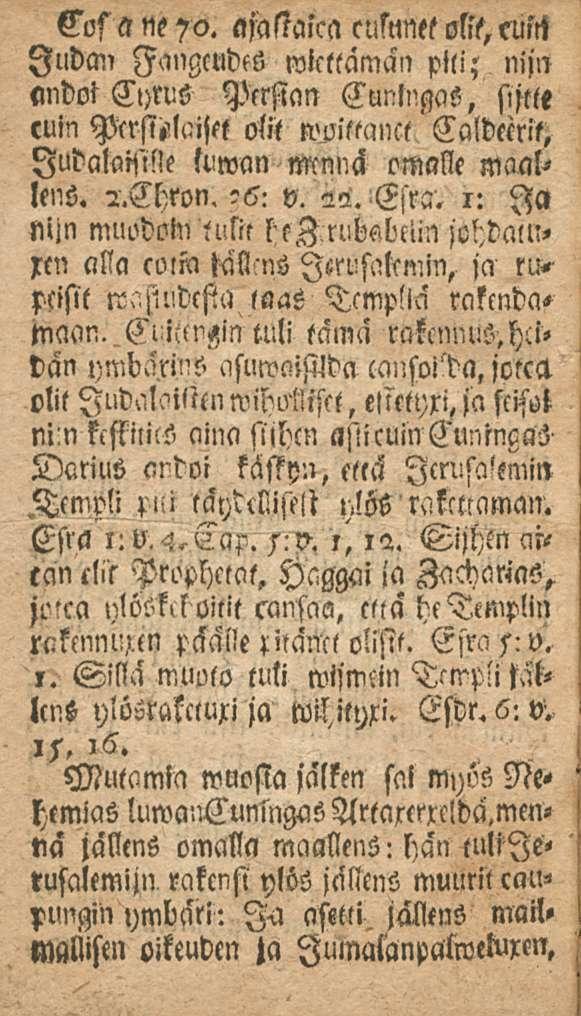 Cosca ne 70. ajastaica culunet olit, cuin
Judan Fangeudes wiettämän piti; nijn
andoi Cyrus Persian Cuningas, sijtte
cuin Persialaiset olit woittanet Caldeerit,
Judalaisille luwan mennä omalle maal-
lens. 2. Chron. 36: v. 22. Esra. 1: Ja
nijn muodoin tulit he Zerubabelin johdatu-
xen alla cotia jällens Jerusalemin, ja ru-
peisit wastudesta taas Templiä rakenda-
maan. Cuitengin tuli tämä rakennus, hei-
dän ymbärins asuwaisilda cansoilda, jotca
olit Judalaisten wiholliset, estetyxi, ja seisoi
nijn keskities aina siihen asti cuin Cuningas
Darius andoi käskyn, että Jerusalemin
Templi piti täydellisest ylös rakettaman.
Esra 1: v. 4. Cap. 5: v. 1, 12. Sijhen ai-
can olit Prophetat, Haggai ja Zacharias,
jotca ylöskehoitit cansaa, että he Templin
rakennuxen päälle pitänet olisit. Esra 5: v.
1. Sillä muoto tuli wijmein Templi jäl-
lens ylösraketuxi ja wihityxi. Esdr. 6: v.
15, 16.
Mutamia wuosia jälken sai myös Ne-
hemias luwan Cuningas Artaxerxeldä, men-
nä jällens omalla maallens: hän tuli Je-
rusalemijn rakensi ylös jällens muurit cau-
pungin ymbäri: Ja asetti jällens mail-
mallisen oikeuden ja Jumalanpalweluxen,